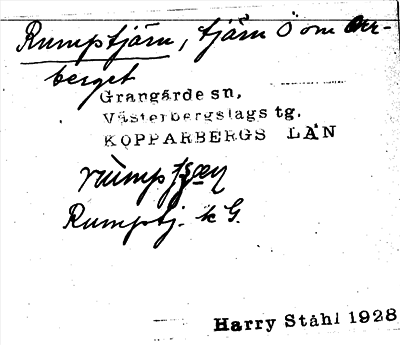 Rumptjärn, tjärn Ö om Orr-
berget
Grangärde sn,
Västerbergslags tg.
KOPPARBERGS LÄN
Rumptj. k G.
Harry Ståhl 1928